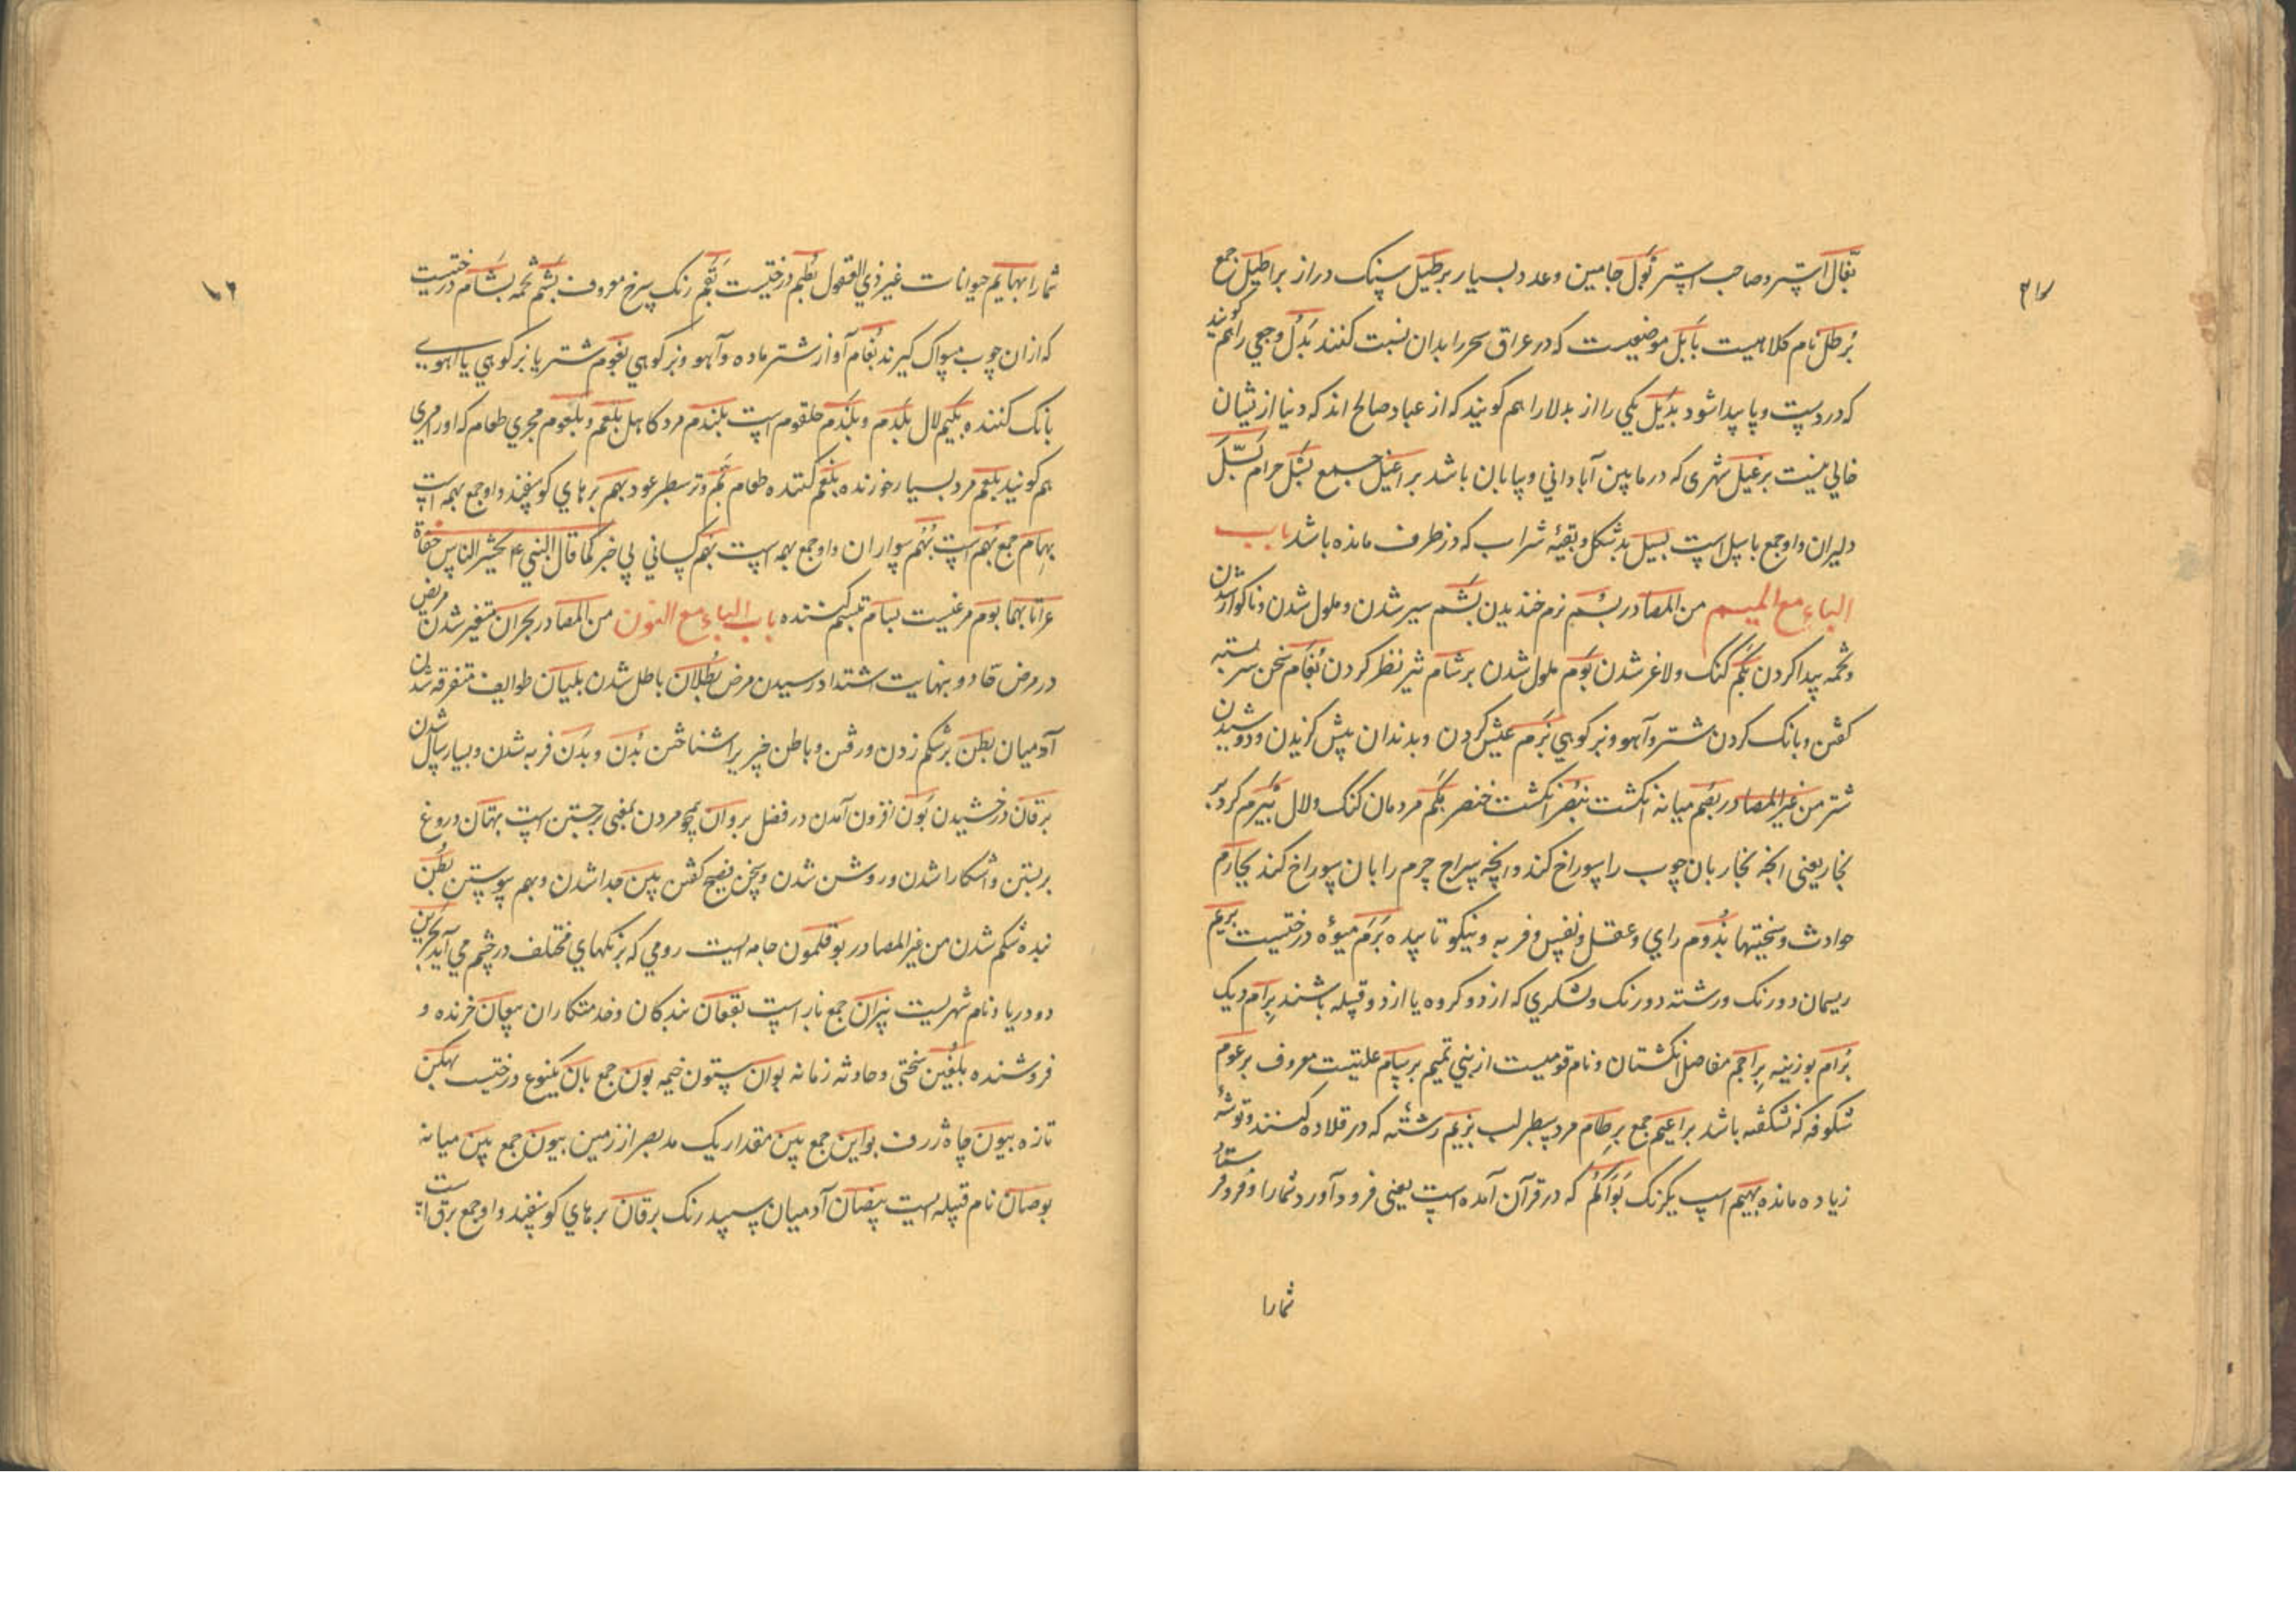 بغال استر و صاحب استر بول جامیین و عدد بسیار برطیل سنک دراز براطیل جمع
برطل نام کلاهیست بابل موضعیست که در عراق سحر را بدان نسبت کنند بدل وجعی را هم کویند
که در دست و پا پیدا شود بدیل یکی را از بدلا را هم کویند که از عباد صالح اند که دنیا از یشان
خالی نیست برغیل شهری که در مابین آبادانی و بیابان باشد براغیل جمع بسل حرام بسل
دلیران و او جمع باسل است بسیل بدشکل و بقیهٔ شراب که در ظرف مانده باشد باب
الباء مع المیم من المصادر بسم نرم خندیدن بشم سیر شدن و ملول شدن و ناکوار شدن
و تخمه پیدا کردن بکم کنک و لاغر شدن بوم ملول شدن برشام تیز نظر کردن بغام سخن سربسته
کفتن و بانک کردن شتر و آهو و بز کوهی بزم عیش کردن و بدندان پیش کزیدن و دوشیدن
شتر من غیر المصادر بصم میانه انکشت بنصر انکشت خنصر بکم مردمان کنک و لال بیرم کرد بر
نجار یعنی انچه نجار بان چوب را سوراخ کند و انچه سراج چرم را بان سوراخ کند بجارم
حوادث و سختیها بذوم رای و عقل و نفیس و فربه و نیکو تابیده برم میوهٔ درختیست بریم
ریسمان دو رنک و رشته دو رنک و لشکری که از دو کروه یا از دو قبیله باشند برام دیک
برام بوزینه براجم مفاصل انکشتان و نام قومیست از بنی تمیم برسام علتیست معروف برعوم
شکوفه که نشکفته باشد براعیم جمع برطام مرد سطبر لب بزیم رشته که در قلاده کنند و توشهٔ
زیاده مانده بهیم اسب یکرنک بوأکم که در قرآن آمده است یعنی فرود آورد شمارا و فرو فرستاد
شمارا
شمارا بهایم حیوانات غیر ذی العقول بطم درختیست بقم رنک سرخ معروف بشم تخمه بشام درختیست
که از ان چوب مسواک کیرند بغام آواز شتر ماده و آهو و بز کوهی بغوم شتر یا بز کوهی یا آهویی
بانک کننده بکیم لال بلدم و بلندم حلقوم است بلندم مرد کاهل بلعم و بلعوم مجری طعام که او را مری
هم کویند بلعم مرد بسیار خورنده بلعم کننده طعام بم وتر سطبر عود بهم برهای کوسفند و او جمع بهمه است
بهام جمع بهم است بهم سواران و او جمع بهمه است بهم کسانی بی خبر کما قال النبی ۴ یحشر الناس حفاة
عراتا بهما بوم مرغیست بسام تبسم کننده باب الباء مع النون من المصادر بحران متغیر شدن مریض
در مرض حاد و بنهایت اشتداد رسیدن مرض بطلان باطل شدن بلیان طوایف متفرقه شدن
آدمیان بطن بر شکم زدن و رفتن و باطن چیزیرا شناختن بدن و بدن فربه شدن و بسیار سال شدن
برقان درخشیدن بون افزون آمدن در فضل بروان همچو مردن بمعنی برجستن است بهتان دروغ
بربستن و اشکارا شدن و روشن شدن و سخن فصیح کفتن بین جدا شدن و بهم پیوستن بطن
بنده شکم شدن من غیر المصادر بوقلمون جامه ایست رومی که برنکهای مختلف در چشم می آید بحرین
دو دریا و نام شهریست نیران جمع نار است بقعان بندکان و خدمتکاران بیعان خرنده و
فروشنده بلغین سختی و حادثه زمانه بوان ستون خیمه بون جمع بان یکنوع درختیست بهکن
تازه بیون چاه ژرف بواین جمع بین مقدار یک مد بصر از زمین بیون جمع بین میانه
بوصان نام قبیله ایست بیضان آدمیان سپید رنک برقان برهای کوسفند و او جمع برق است